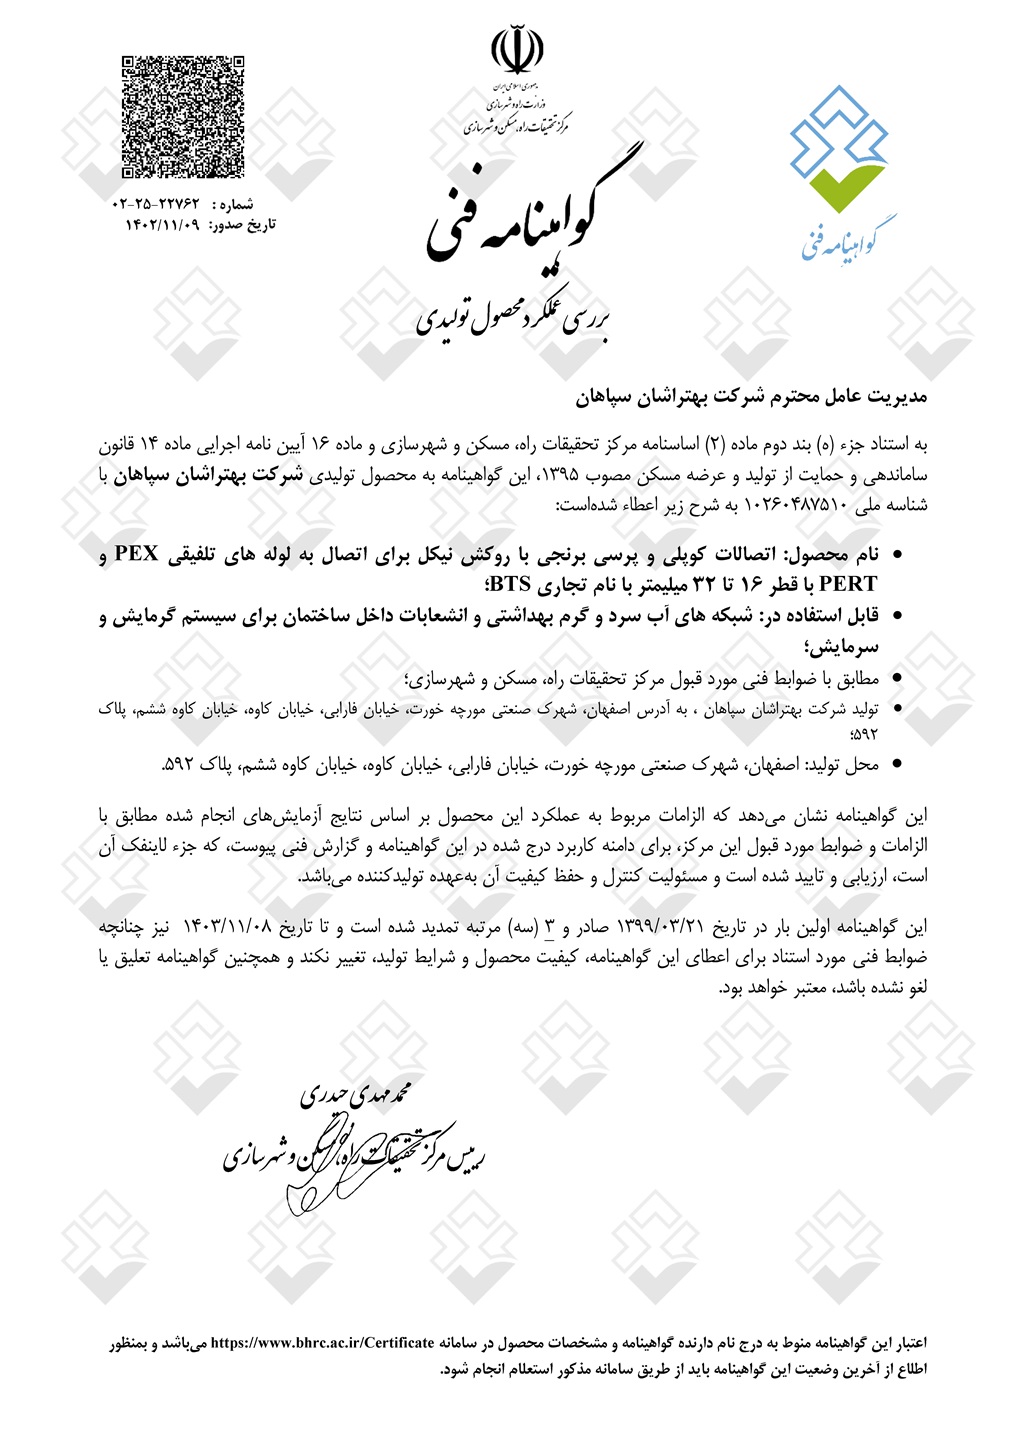 جمهوری اسلامی ایران
وزارت راه و شهرسازی
مرکز تحقیقات راه، مسکن و شهرسازی
گواهینامه فنی
شماره : ۰۲-۲۵-۲۲۷۶۲
تاریخ صدور: ۱۴۰۲/۱۱/۰۹
گواهینامه فنی
بررسی عملکرد محصول تولیدی
مدیریت عامل محترم شرکت بهتراشان سپاهان
به استناد جزء (ه) بند دوم ماده (۲) اساسنامه مرکز تحقیقات راه، مسکن و شهرسازی و ماده ۱۶ آیین نامه اجرایی ماده ۱۴ قانون
ساماندهی و حمایت از تولید و عرضه مسکن مصوب ۱۳۹۵، این گواهینامه به محصول تولیدی شرکت بهتراشان سپاهان با
شناسه ملی ۱۰۲۶۰۴۸۷۵۱۰ به شرح زیر اعطاء شده‌است:
• نام محصول: اتصالات کوپلی و پرسی برنجی با روکش نیکل برای اتصال به لوله های تلفیقی PEX و
PERT با قطر ۱۶ تا ۳۲ میلیمتر با نام تجاری BTS؛
• قابل استفاده در: شبکه های آب سرد و گرم بهداشتی و انشعابات داخل ساختمان برای سیستم گرمایش و
سرمایش؛
• مطابق با ضوابط فنی مورد قبول مرکز تحقیقات راه، مسکن و شهرسازی؛
• تولید شرکت بهتراشان سپاهان ، به آدرس اصفهان، شهرک صنعتی مورچه خورت، خیابان فارابی، خیابان کاوه، خیابان کاوه ششم، پلاک
۵۹۲؛
• محل تولید: اصفهان، شهرک صنعتی مورچه خورت، خیابان فارابی، خیابان کاوه، خیابان کاوه ششم، پلاک ۵۹۲.
این گواهینامه نشان می‌دهد که الزامات مربوط به عملکرد این محصول بر اساس نتایج آزمایش‌های انجام شده مطابق با
الزامات و ضوابط مورد قبول این مرکز، برای دامنه کاربرد درج شده در این گواهینامه و گزارش فنی پیوست، که جزء لاینفک آن
است، ارزیابی و تایید شده است و مسئولیت کنترل و حفظ کیفیت آن به‌عهده تولیدکننده می‌باشد.
این گواهینامه اولین بار در تاریخ ۱۳۹۹/۰۳/۲۱ صادر و ۳ (سه) مرتبه تمدید شده است و تا تاریخ ۱۴۰۳/۱۱/۰۸ نیز چنانچه
ضوابط فنی مورد استناد برای اعطای این گواهینامه، کیفیت محصول و شرایط تولید، تغییر نکند و همچنین گواهینامه تعلیق یا
لغو نشده باشد، معتبر خواهد بود.
محمد مهدی حیدری
رییس مرکز تحقیقات راه، مسکن و شهرسازی
اعتبار این گواهینامه منوط به درج نام دارنده گواهینامه و مشخصات محصول در سامانه https://www.bhrc.ac.ir/Certificate می‌باشد و بمنظور
اطلاع از آخرین وضعیت این گواهینامه باید از طریق سامانه مذکور استعلام انجام شود.